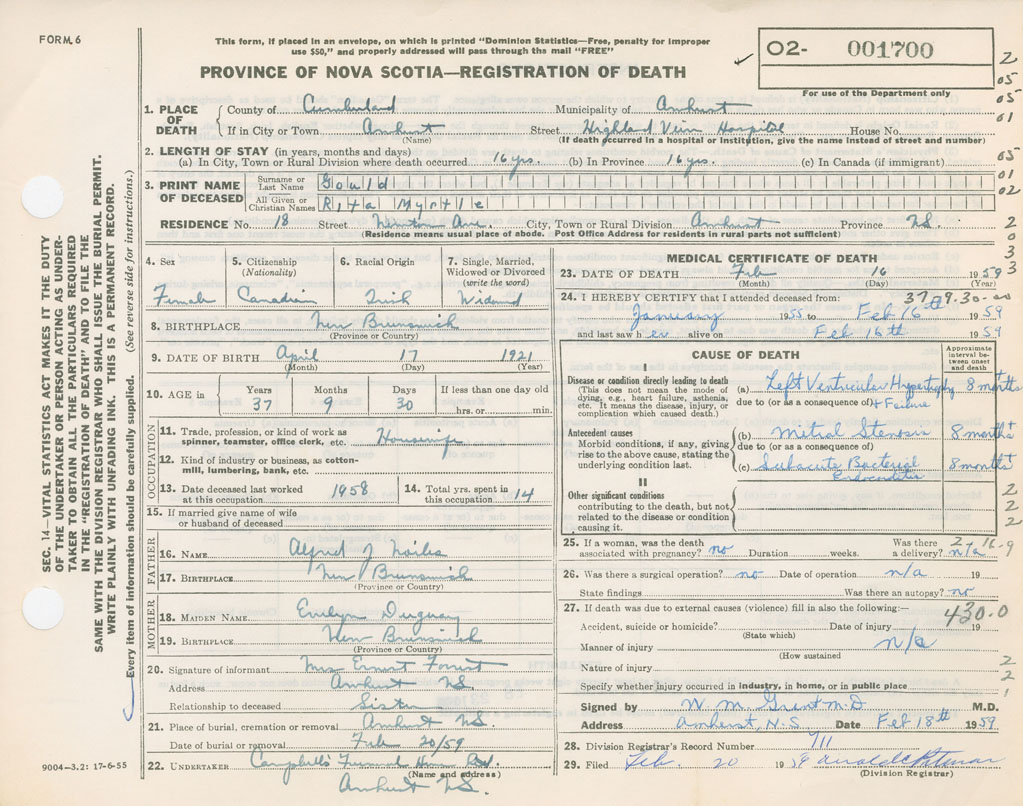 FORM 6
This form, if placed in an envelope, on which is printed "Dominion Statistics—Free, penalty for improper
use $50," and properly addressed will pass through the mail "FREE"
PROVINCE OF NOVA SCOTIA—REGISTRATION OF DEATH
02- 001700
For use of the Department only
2
05
05
01
05
01
02
2
0
3
3
SEC. 14—VITAL STATISTICS ACT MAKES IT THE DUTY
OF THE UNDERTAKER OR PERSON ACTING AS UNDER-
TAKER TO OBTAIN ALL THE PARTICULARS REQUIRED
IN THE "REGISTRATION OF DEATH" AND TO FILE THE
SAME WITH THE DIVISION REGISTRAR WHO SHALL ISSUE THE BURIAL PERMIT.
WRITE PLAINLY WITH UNFADING INK. THIS IS A PERMANENT RECORD.
Every item of information should be carefully supplied. (See reverse side for instructions.)
1. PLACE OF DEATH
County of Cumberland Municipality of Amherst
If in City or Town Amherst Street Highland View Hospital House No.
(Name) (If death occurred in a hospital or institution, give the name instead of street and number)
2. LENGTH OF STAY (in years, months and days)
(a) In City, Town or Rural Division where death occurred 16 yrs. (b) In Province 16 yrs. (c) In Canada (if immigrant)
3. PRINT NAME OF DECEASED
Surname or Last Name Gould
All Given or Christian Names Rita Myrtle
RESIDENCE No. 18 Street Ave. City, Town or Rural Division Amherst Province NS.
(Residence means usual place of abode. Post Office Address for residents in rural parts not sufficient)
4. Sex
Female
5. Citizenship
(Nationality)
Canadian
6. Racial Origin
7. Single, Married,
Widowed or Divorced
(write the word)
Widowed
8. BIRTHPLACE New Brunswick
(Province or Country)
9. DATE OF BIRTH April 17 1921
(Month) (Day) (Year)
10. AGE in
Years 37
Months 9
Days 30
If less than one day old
hrs. or min.
OCCUPATION
11. Trade, profession, or kind of work as
spinner, teamster, office clerk, etc. Housewife
12. Kind of industry or business, as cotton-
mill, lumbering, bank, etc.
13. Date deceased last worked
at this occupation 1958
14. Total yrs. spent in
this occupation 14
15. If married give name of wife
or husband of deceased
FATHER
16. NAME Alfred J
17. BIRTHPLACE New Brunswick
(Province or Country)
MOTHER
18. MAIDEN NAME Evelyn Duguay
19. BIRTHPLACE New Brunswick
(Province or Country)
20. Signature of informant Mrs Ernest Forrest
Address Amherst NS.
Relationship to deceased Sister
21. Place of burial, cremation or removal Amherst NS.
Date of burial or removal Feb 20/59
22. UNDERTAKER Campbells Funeral Home Ltd.
(Name and address)
Amherst NS.
9004—3.2: 17-6-55
MEDICAL CERTIFICATE OF DEATH
23. DATE OF DEATH Feb 16 1959
(Month) (Day) (Year)
24. I HEREBY CERTIFY that I attended deceased from:
January 1955 to Feb 16th 1959
and last saw her alive on Feb 16th 1959
CAUSE OF DEATH
Approximate interval between onset and death
I
Disease or condition directly leading to death
(This does not mean the mode of
dying, e.g., heart failure, asthenia,
etc. It means the disease, injury, or
complication which caused death.)
(a) Left Ventricular Hypertrophy 8 months
due to (or as a consequence of) + Failure
Antecedent causes
Morbid conditions, if any, giving
rise to the above cause, stating the
underlying condition last.
(b) Mitral Stenosis 8 months+
due to (or as a consequence of)
(c) Subacute Bacterial 8 months+
Endocarditis
II
Other significant conditions
contributing to the death, but not
related to the disease or condition
causing it.
2
2
2
25. If a woman, was the death
associated with pregnancy? no Duration weeks. Was there
a delivery? n/a
26. Was there a surgical operation? no Date of operation n/a 19
State findings Was there an autopsy? no
27. If death was due to external causes (violence) fill in also the following:—
430.0
Accident, suicide or homicide? Date of injury 19
(State which)
Manner of injury n/a
(How sustained
Nature of injury
2
2
1
Specify whether injury occurred in industry, in home, or in public place
Signed by W. M. Grant M.D. M.D.
Address Amherst, N.S Date Feb 18th 1959.
28. Division Registrar's Record Number 711
29. Filed Feb. 20 1959
(Division Registrar)